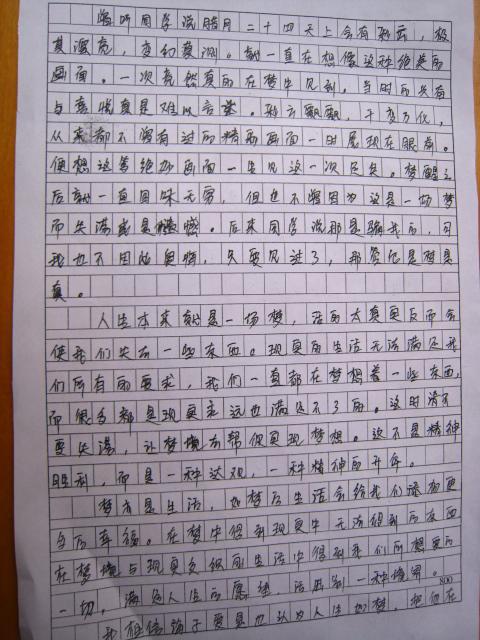 曾听同学说腊月二十四天上会有彩云，极
其漂亮，变幻莫测。就一直在想像这种绝美的
画面。一次竟然真的在梦中见到。当时的兴奋
与喜悦真是难以言表。彩云飘飘，千变万化，
从来都不曾有过的精丽画面一时展现在眼前。
便想这等绝妙画面一生见这一次足矣。梦醒之
后就一直回味无穷，但也不曾因为这是一场梦
而失落或是懊恼。后来同学说那是骗我的，可
我也不因此懊悔，只要见过了，那管它是梦是
真。
人生本来就是一场梦，活的太真实反而会
使我们失去一些东西。现实的生活无法满足我
们所有的要求，我们一直都在梦想着一些东西，
而很多都是现实永远也满足不了的。这时请不
要失落，让梦境去帮你实现梦想。这不是精神
胜利，而是一种达观，一种精神的升华。
梦亦是生活，如梦的生活会给我们添加更
多的幸福。在梦中得到现实中无法得到的东西
在梦境与现实交织的生活中得到我们所想要的
一切，满足人生的愿望，活出别一种境界。
800
我相信庄子要是也认为人生如梦，把他在